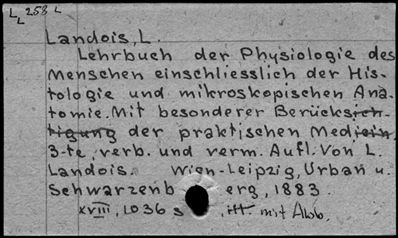 L L 258 L
Landois, L.
Lehrbuch der Physiologie des
Menschen einschliesslich der His-
tologie und mikroskopischen Ana-
tomie. Mit besonderer Berücksich-
tigung der praktischen Medicin.
3-te, verb. und verm. Aufl. Von L.
Landois. Wien-Leipzig, Urban u.
Schwarzenberg, 1883.
XVIII, 1036 S., ill. mit Abb.